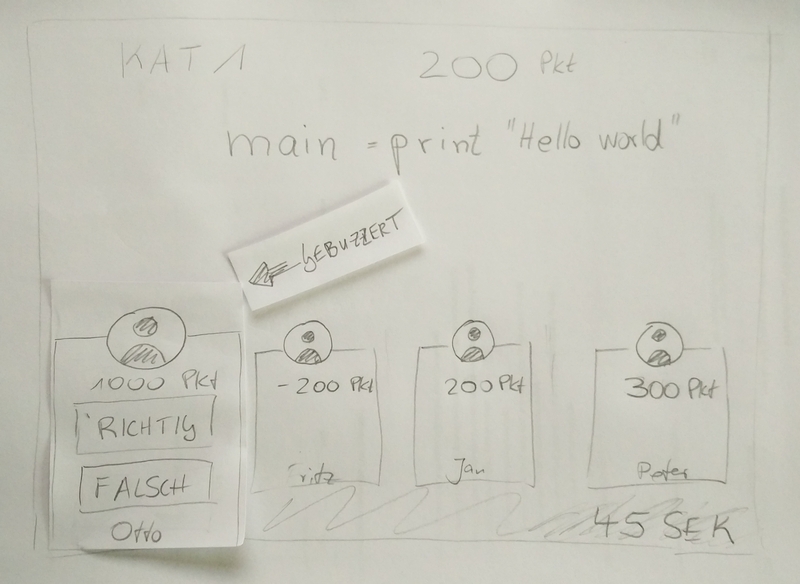 KAT 1
200 Pkt
main = print "Hello world"
GEBUZZERT
1000 Pkt
RICHTIG
FALSCH
Otto
-200 Pkt
Fritz
200 Pkt
Jan
300 Pkt
Peter
45 SEK